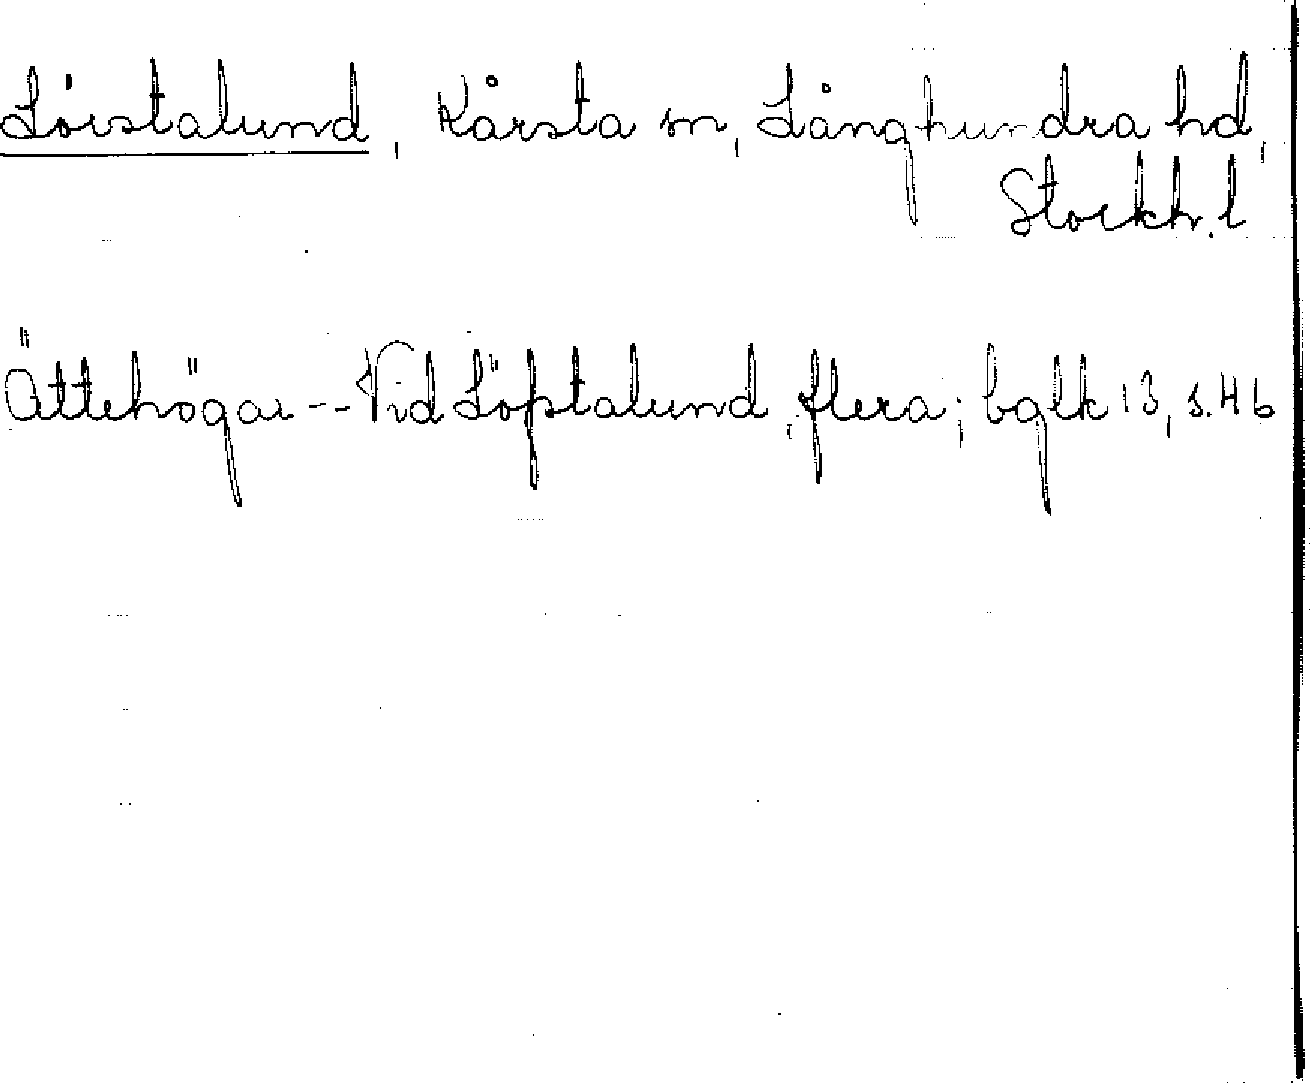 Lövstalund, Kårsta sn, Långhundra hd,
Stockh. l
Ättehögar -- Vid Löfstalund, flera; bglk 13, s. 46